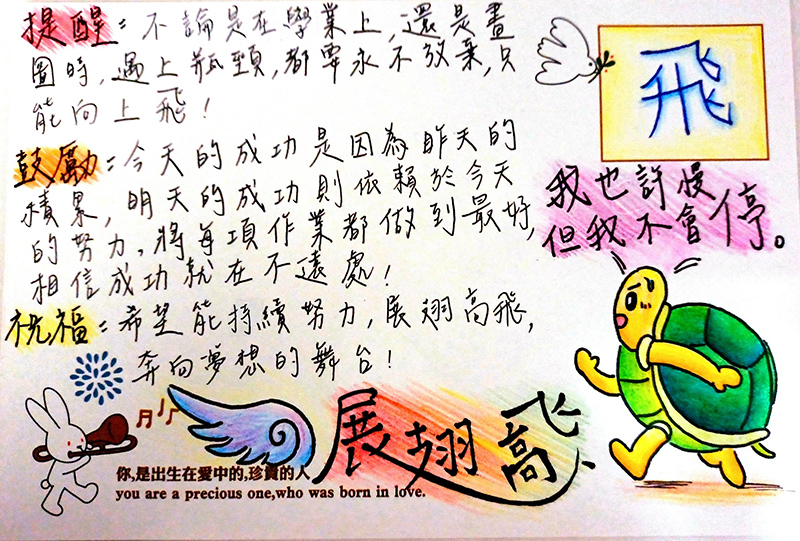 提醒：不論是在學業上，還是畫
圖時，遇上瓶頸，都要永不放棄，只
能向上飛！
鼓勵：今天的成功是因為昨天的
積累，明天的成功則依賴於今天
的努力。將每項作業都做到最好，
相信成功就在不遠處！
祝福：希望能持續努力，展翅高飛，
奔向夢想的舞台！
飛
我也許慢
但我不會停。
展翅高飛
你,是出生在愛中的,珍貴的人
you are a precious one,who was born in love.